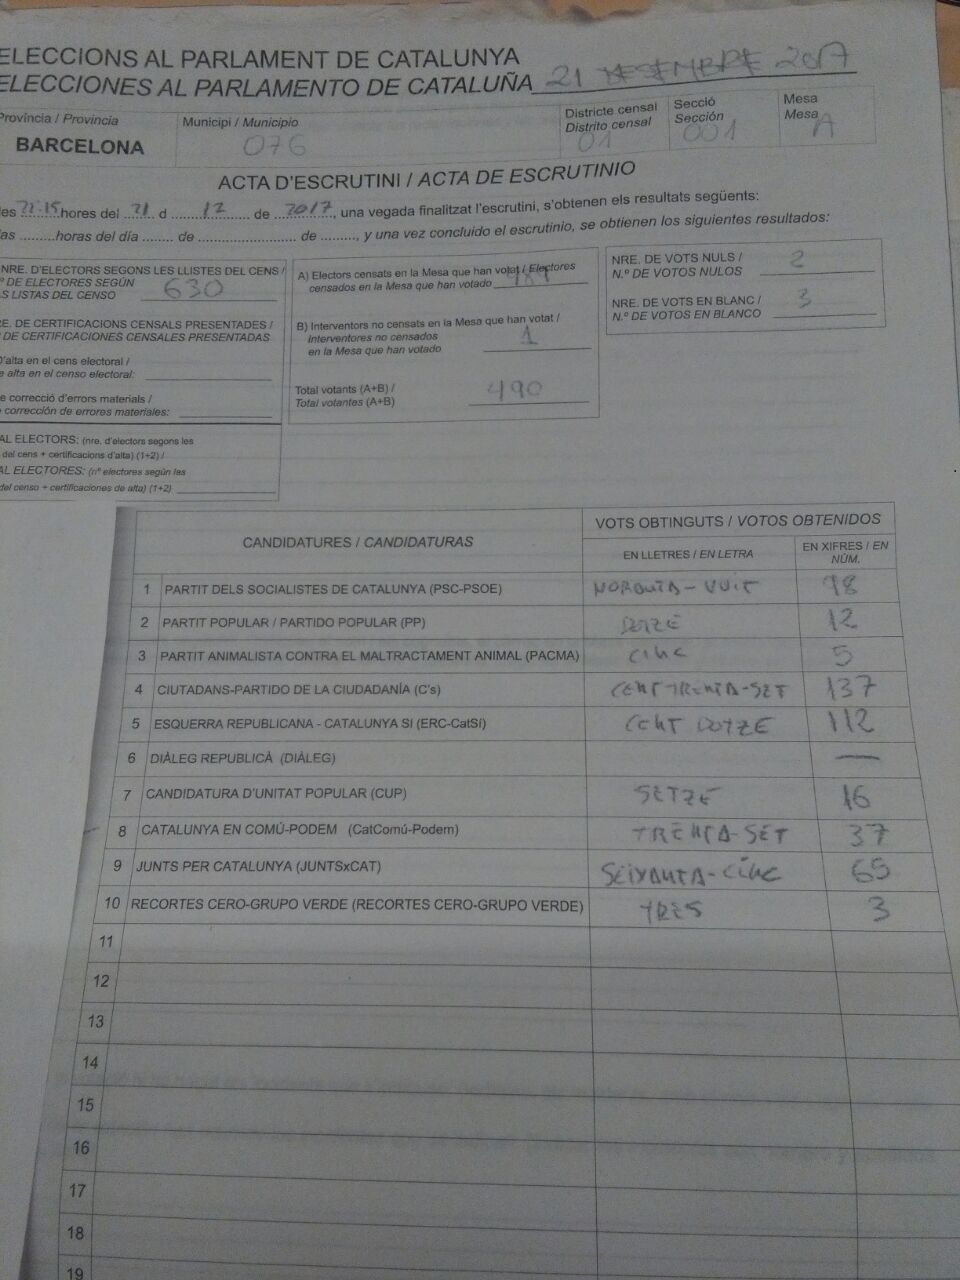 ELECCIONS AL PARLAMENT DE CATALUNYA
ELECCIONES AL PARLAMENTO DE CATALUÑA 21 DESEMBRE 2017
Província / Provincia
BARCELONA
Municipi / Municipio
076
Districte censal
Distrito censal
01
Secció
Sección
001
Mesa
Mesa
A
ACTA D'ESCRUTINI / ACTA DE ESCRUTINIO
les 22:15 hores del 21 d 12 de 2017, una vegada finalitzat l'escrutini, s'obtenen els resultats següents:
las .........horas del día ........ de ......................... de ........., y una vez concluido el escrutinio, se obtienen los siguientes resultados:
NRE. D'ELECTORS SEGONS LES LLISTES DEL CENS /
º DE ELECTORES SEGÚN
S LISTAS DEL CENSO 630
E. DE CERTIFICACIONS CENSALS PRESENTADES /
DE CERTIFICACIONES CENSALES PRESENTADAS
D'alta en el cens electoral /
e alta en el censo electoral:
e correcció d'errors materials /
corrección de errores materiales:
AL ELECTORS: (nre. d'electors segons les
del cens + certificacions d'alta) (1+2) /
AL ELECTORES: (nº electores según las
del censo + certificaciones de alta) (1+2)
A) Electors censats en la Mesa que han votat / Electores
censados en la Mesa que han votado 489
B) Interventors no censats en la Mesa que han votat /
Interventores no censados
en la Mesa que han votado 1
Total votants (A+B) /
Total votantes (A+B) 490
NRE. DE VOTS NULS /
N.º DE VOTOS NULOS 2
NRE. DE VOTS EN BLANC /
N.º DE VOTOS EN BLANCO 3
CANDIDATURES / CANDIDATURAS
VOTS OBTINGUTS / VOTOS OBTENIDOS
EN LLETRES / EN LETRA
EN XIFRES / EN NÚM.
1 PARTIT DELS SOCIALISTES DE CATALUNYA (PSC-PSOE) NORANTA-VUIT 98
2 PARTIT POPULAR / PARTIDO POPULAR (PP) DOTZE 12
3 PARTIT ANIMALISTA CONTRA EL MALTRACTAMENT ANIMAL (PACMA) CINC 5
4 CIUTADANS-PARTIDO DE LA CIUDADANÍA (C's) CENT TRENTA-SET 137
5 ESQUERRA REPUBLICANA - CATALUNYA SI (ERC-CatSí) CENT DOTZE 112
6 DIÀLEG REPUBLICÀ (DIÀLEG) —
7 CANDIDATURA D'UNITAT POPULAR (CUP) SETZE 16
8 CATALUNYA EN COMÚ-PODEM (CatComú-Podem) TRENTA-SET 37
9 JUNTS PER CATALUNYA (JUNTSxCAT) SEIXANTA-CINC 65
10 RECORTES CERO-GRUPO VERDE (RECORTES CERO-GRUPO VERDE) TRES 3
11
12
13
14
15
16
17
18
19